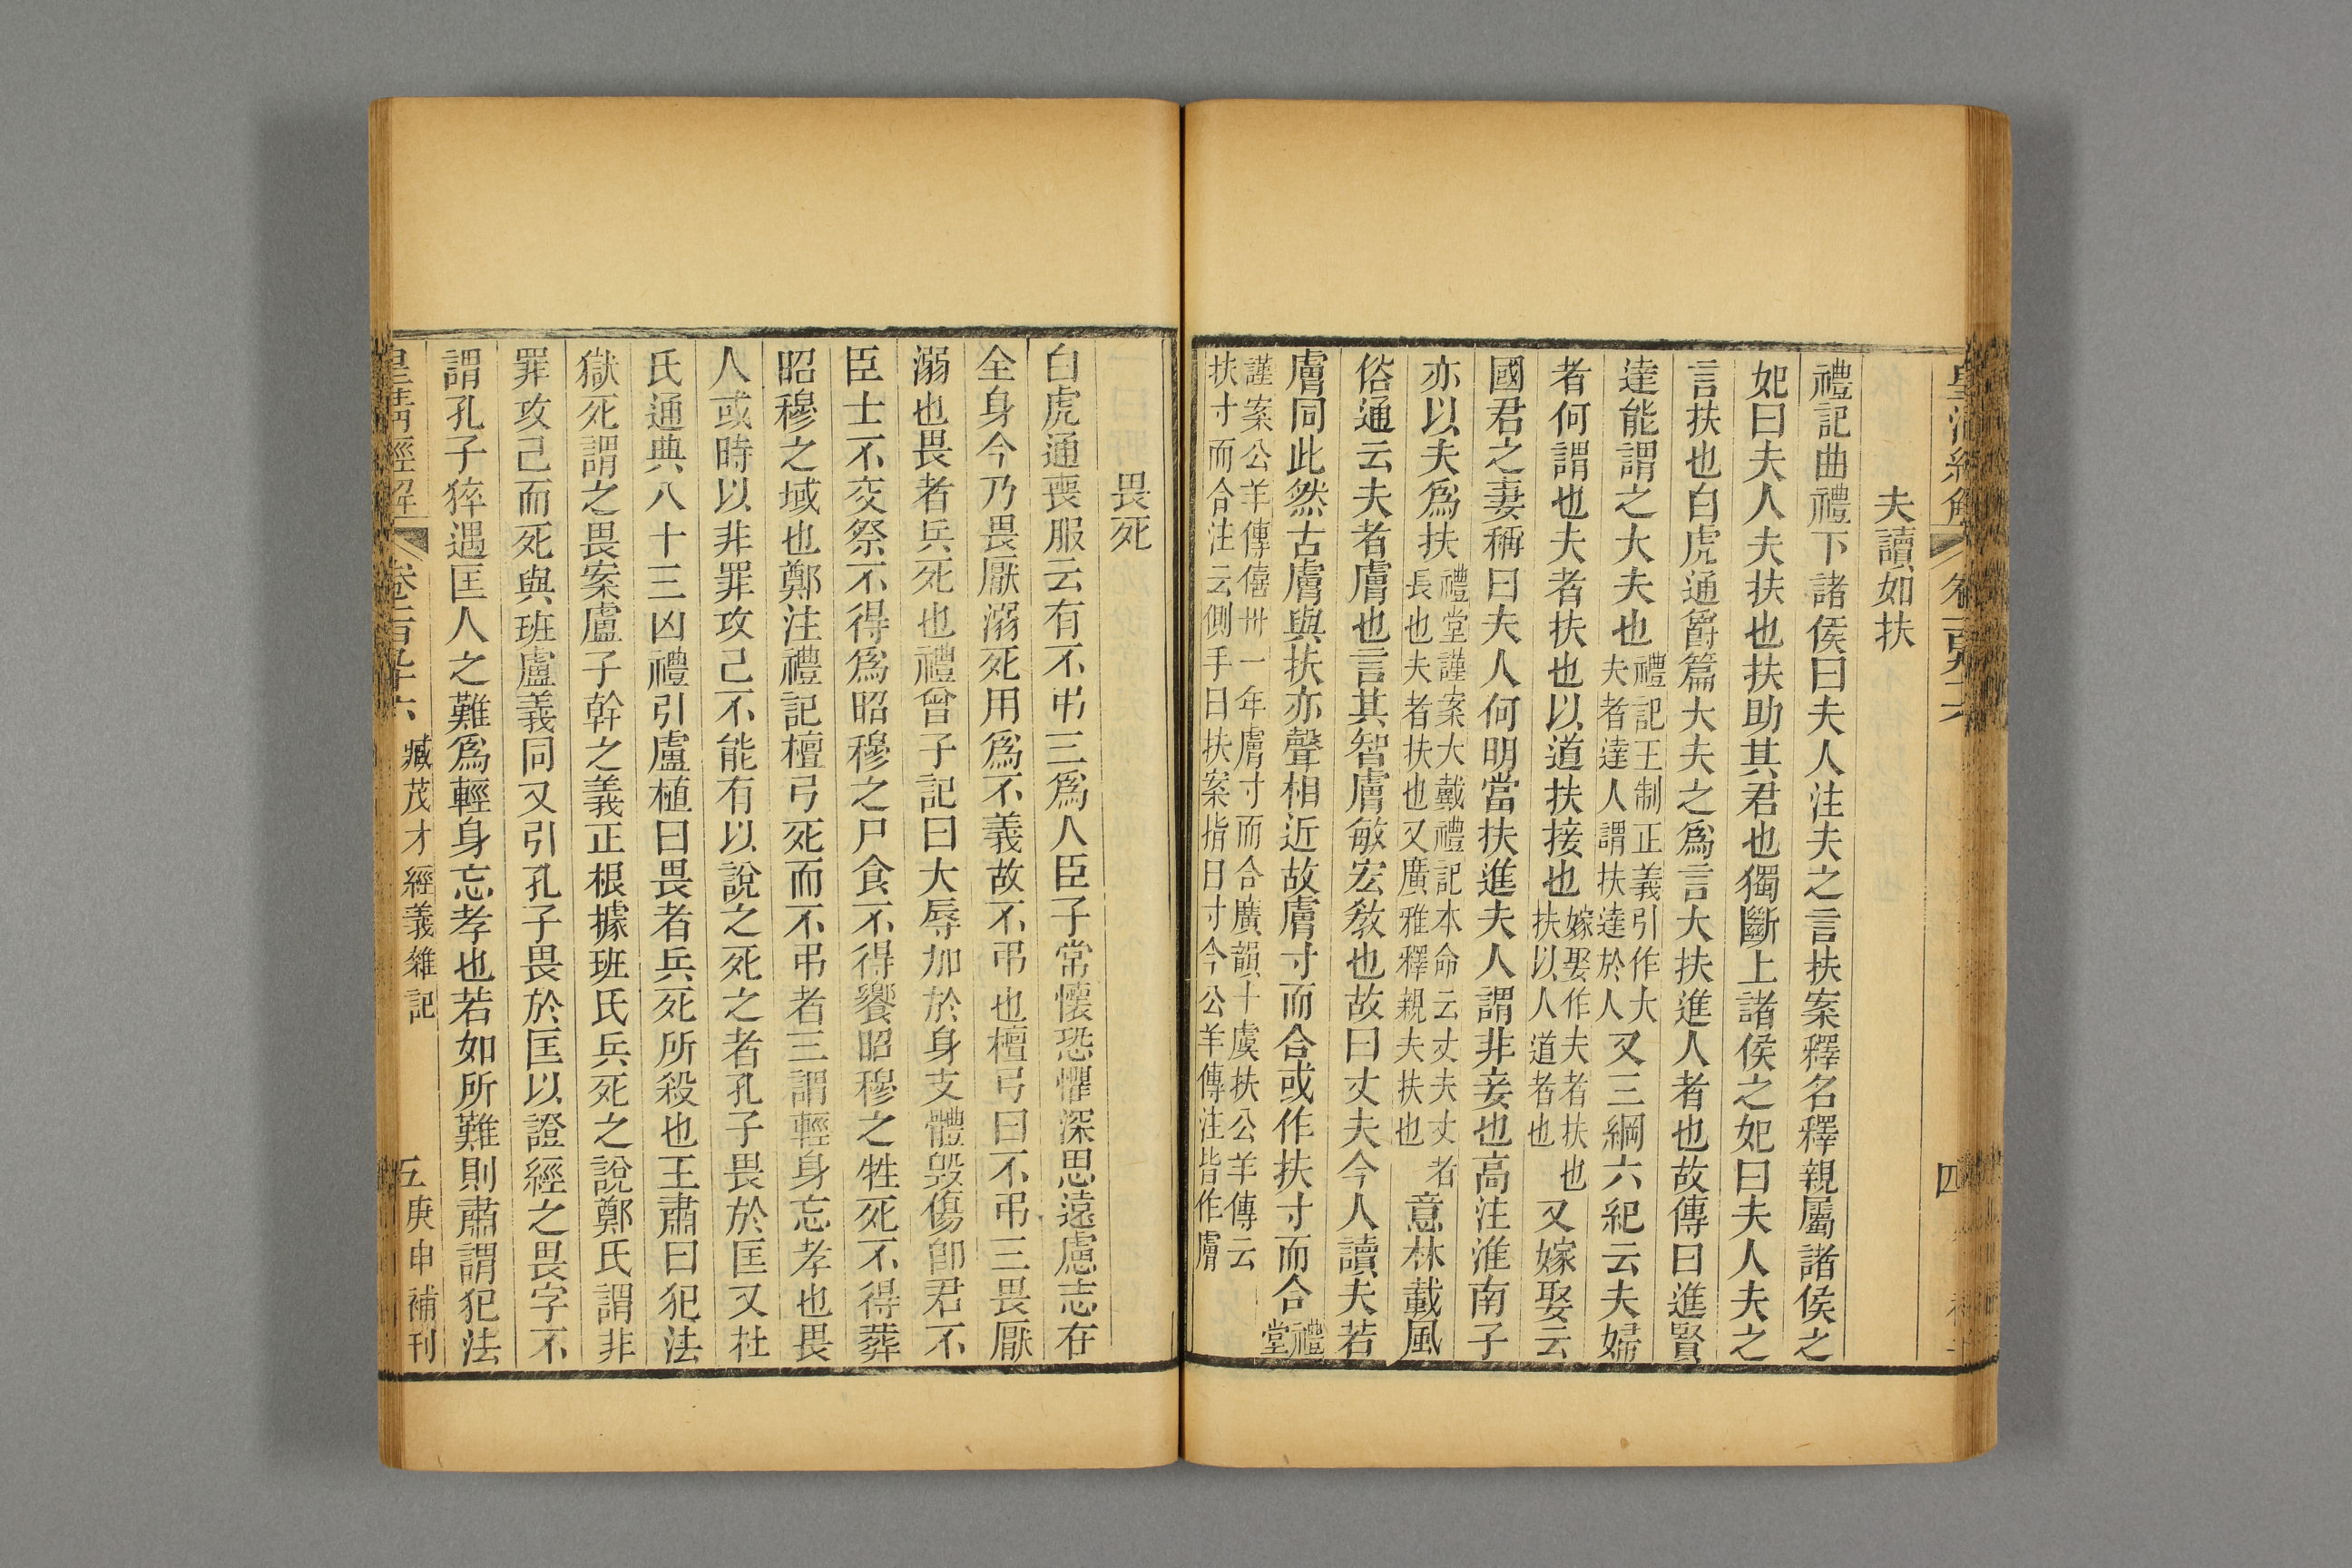 夫讀如扶
禮記曲禮下諸侯曰夫人注夫之言扶案釋名釋親屬諸侯之
妃曰夫人夫扶也扶助其君也獨斷上諸侯之妃曰夫人夫之
言扶也白虎通爵篇大夫之爲言大扶進人者也故傳曰進賢
達能謂之大夫也禮記王制正義引作大夫者達人謂扶達於人又三綱六紀云夫婦
者何謂也夫者扶也以道扶接也嫁娶作夫者扶也扶以人道者也又嫁娶云
國君之妻稱曰夫人何明當扶進夫人謂非妾也高注淮南子
亦以夫爲扶禮堂謹案大戴禮記本命云丈夫丈者長也夫者扶也又廣雅釋親夫扶也意林載風
俗通云夫者膚也言其智膚敏宏敎也故曰丈夫今人讀夫若
膚同此然古膚與扶亦聲相近故膚寸而合或作扶寸而合禮堂
謹案公羊傳僖卅一年膚寸而合廣韻十虞扶公羊傳云
扶寸而合注云側手曰扶案指曰寸今公羊傳注皆作膚
皇清經解
四
畏死
白虎通喪服云有不弔三爲人臣子常懷恐懼深思遠慮志在
全身今乃畏厭溺死用爲不義故不弔也檀弓曰不弔三畏厭
溺也畏者兵死也禮曾子記曰大辱加於身支體毀傷卽君不
臣士不交祭不得爲昭穆之尸食不得饗昭穆之牲死不得葬
昭穆之域也鄭注禮記檀弓死而不弔者三謂輕身忘孝也畏
人或時以非罪攻己不能有以說之死之者孔子畏於匡又杜
氏通典八十三凶禮引盧植曰畏者兵死所殺也王肅曰犯法
獄死謂之畏案盧子幹之義正根據班氏兵死之說鄭氏謂非
罪攻己而死與班盧義同又引孔子畏於匡以證經之畏字不
謂孔子猝遇匡人之難爲輕身忘孝也若如所難則肅謂犯法
皇清經解 卷二百九十六 臧茂才經義雜記 五 庚申補刊